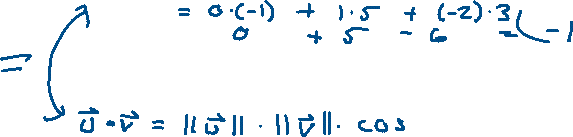 = 0·(-1) + 1·5 + (-2)·3
0 + 5 - 6 = -1
=
u⃗·v⃗ = ||u⃗||·||v⃗||· cos